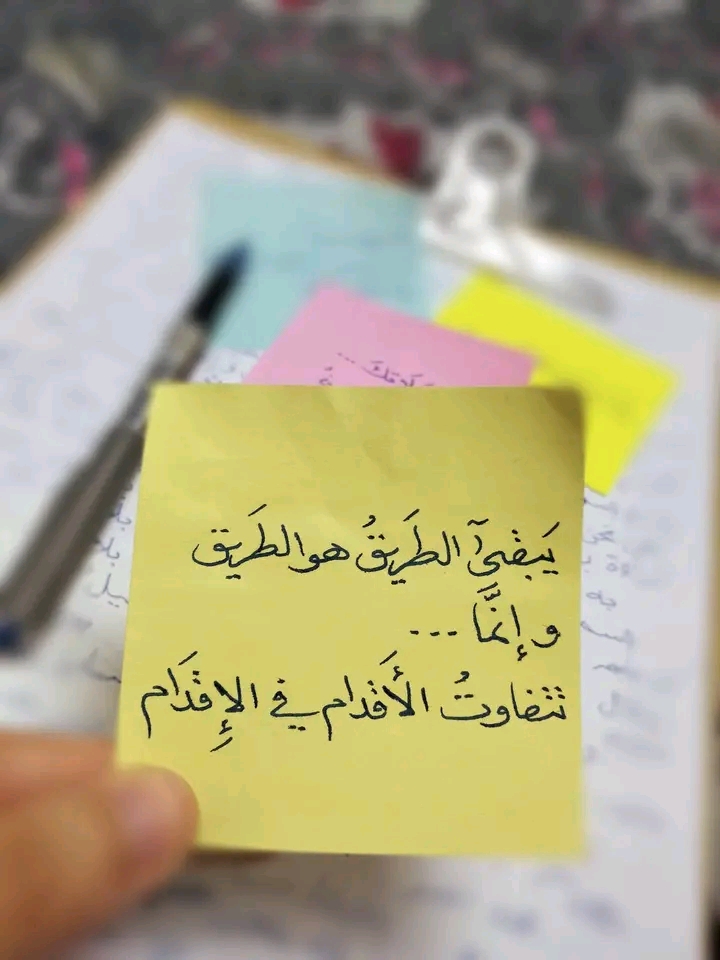 يَبقىَ الطَرِيقُ هو الطَرِيق
وإنمَّا ...
تتفاوتُ الأَقدَام في الإِقدَام